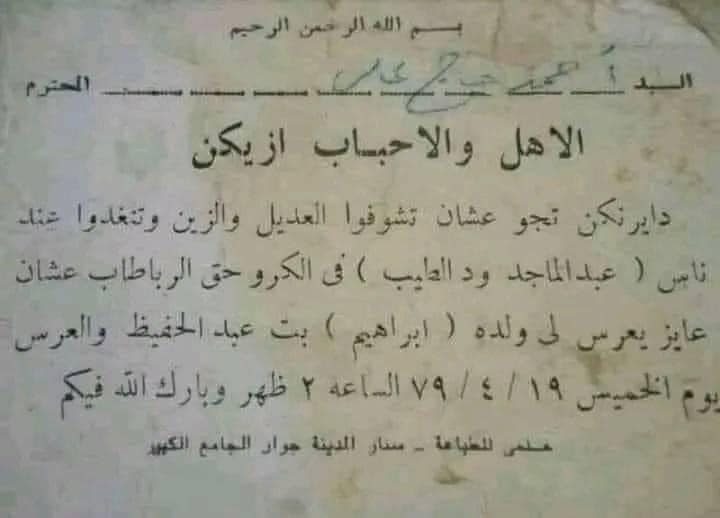 بسم الله الرحمن الرحيم
السيد أ ــــ ــــ ــــ المحترم
الاهل والاحباب ازيكن
دايرنكن تجو عشان تشوفوا العديل والزين وتتغدوا عند
ناس ( عبدالماجد ود الطيب ) فى الكرو حق الرباطاب عشان
عايز يعرس لى ولده ( ابراهيم ) بت عبد الحفيظ والعرس
يوم الخميس ١٩ / ٤ / ٧٩ الساعه ٢ ظهر وبارك الله فيكم
للطباعة ــ سنار المدينة جوار الجامع الكبير